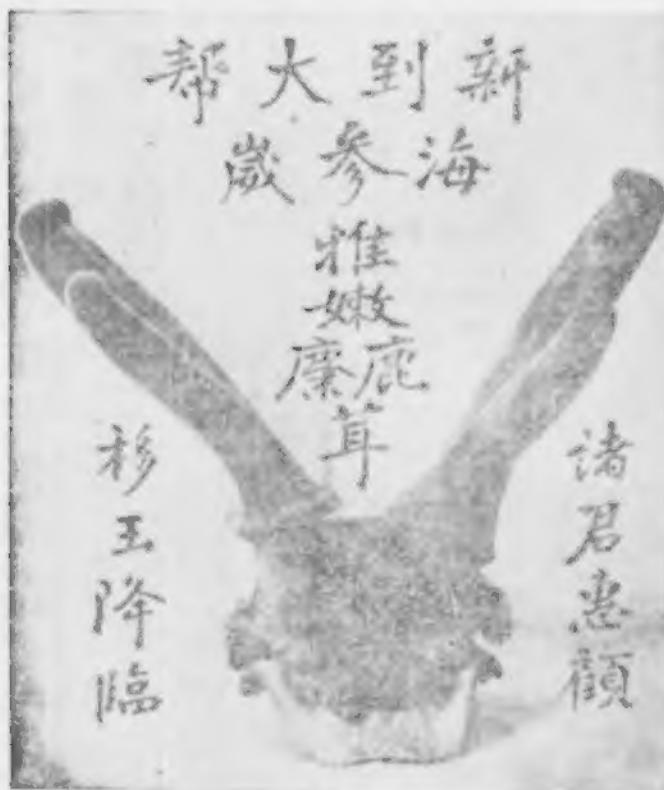 新到大帮
海參崴
雅嫩
鹿麋
茸
諸君惠顧
移玉降臨